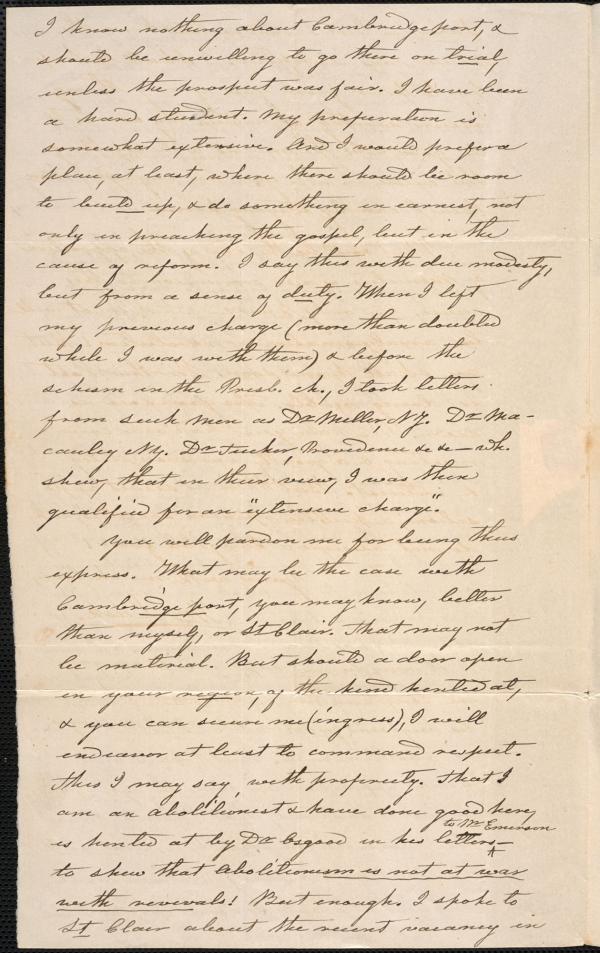 I know nothing about Cambridgeport, &
should be unwilling to go there on trial,
unless the prospect was fair. I have been
a hard student. My preparation is
somewhat extensive. And I would prefer a
place, at least, where there should be room
to build up, & do something in earnest, not
only in preaching the gospel, but in the
cause of reform. I say this with due modesty,
but from a sense of duty. When I left
my previous charge (more than doubled
while I was with them) & before the
schism in the Presb. ch., I took letters
from such men as Dr Miller, NJ. Dr Ma-
cauley NY. Dr Tucker, Providence &c &c — wh.
shew, that in their view, I was then
qualified for an "extensive charge".
You will pardon me for being thus
express. What may be the case with
Cambridge port, you may know, better
than myself, or St Clair. That may not
be material. But should a door open
in your region, of the kind hented at,
& you can secure me (ingress), I will
endeavor at least to command respect.
This I may say, with propriety. That I
am an abolitionist & have done good here,
is hented at by Dr Osgood in his letters —
to Mr Emerson
to shew that abolitionism is not at war
with revivals! But enough. I spoke to
St Clair about the recent vacancy in